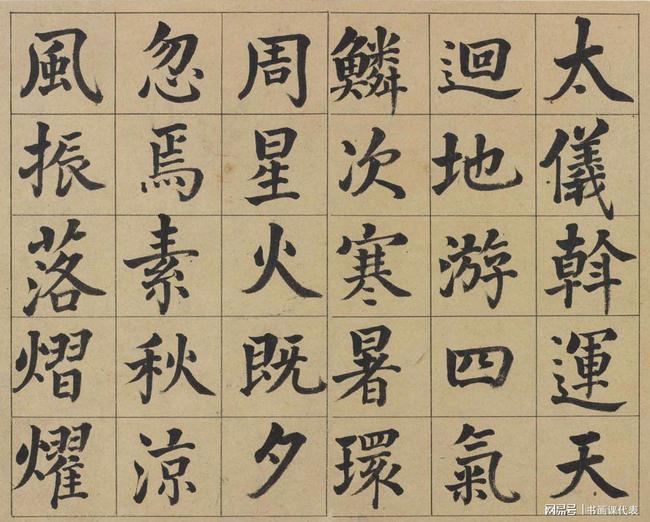 太儀斡運天
迴地游四氣
鱗次寒暑環
周星火既夕
忽焉素秋涼
風振落熠燿
网易号 | 书画课代表